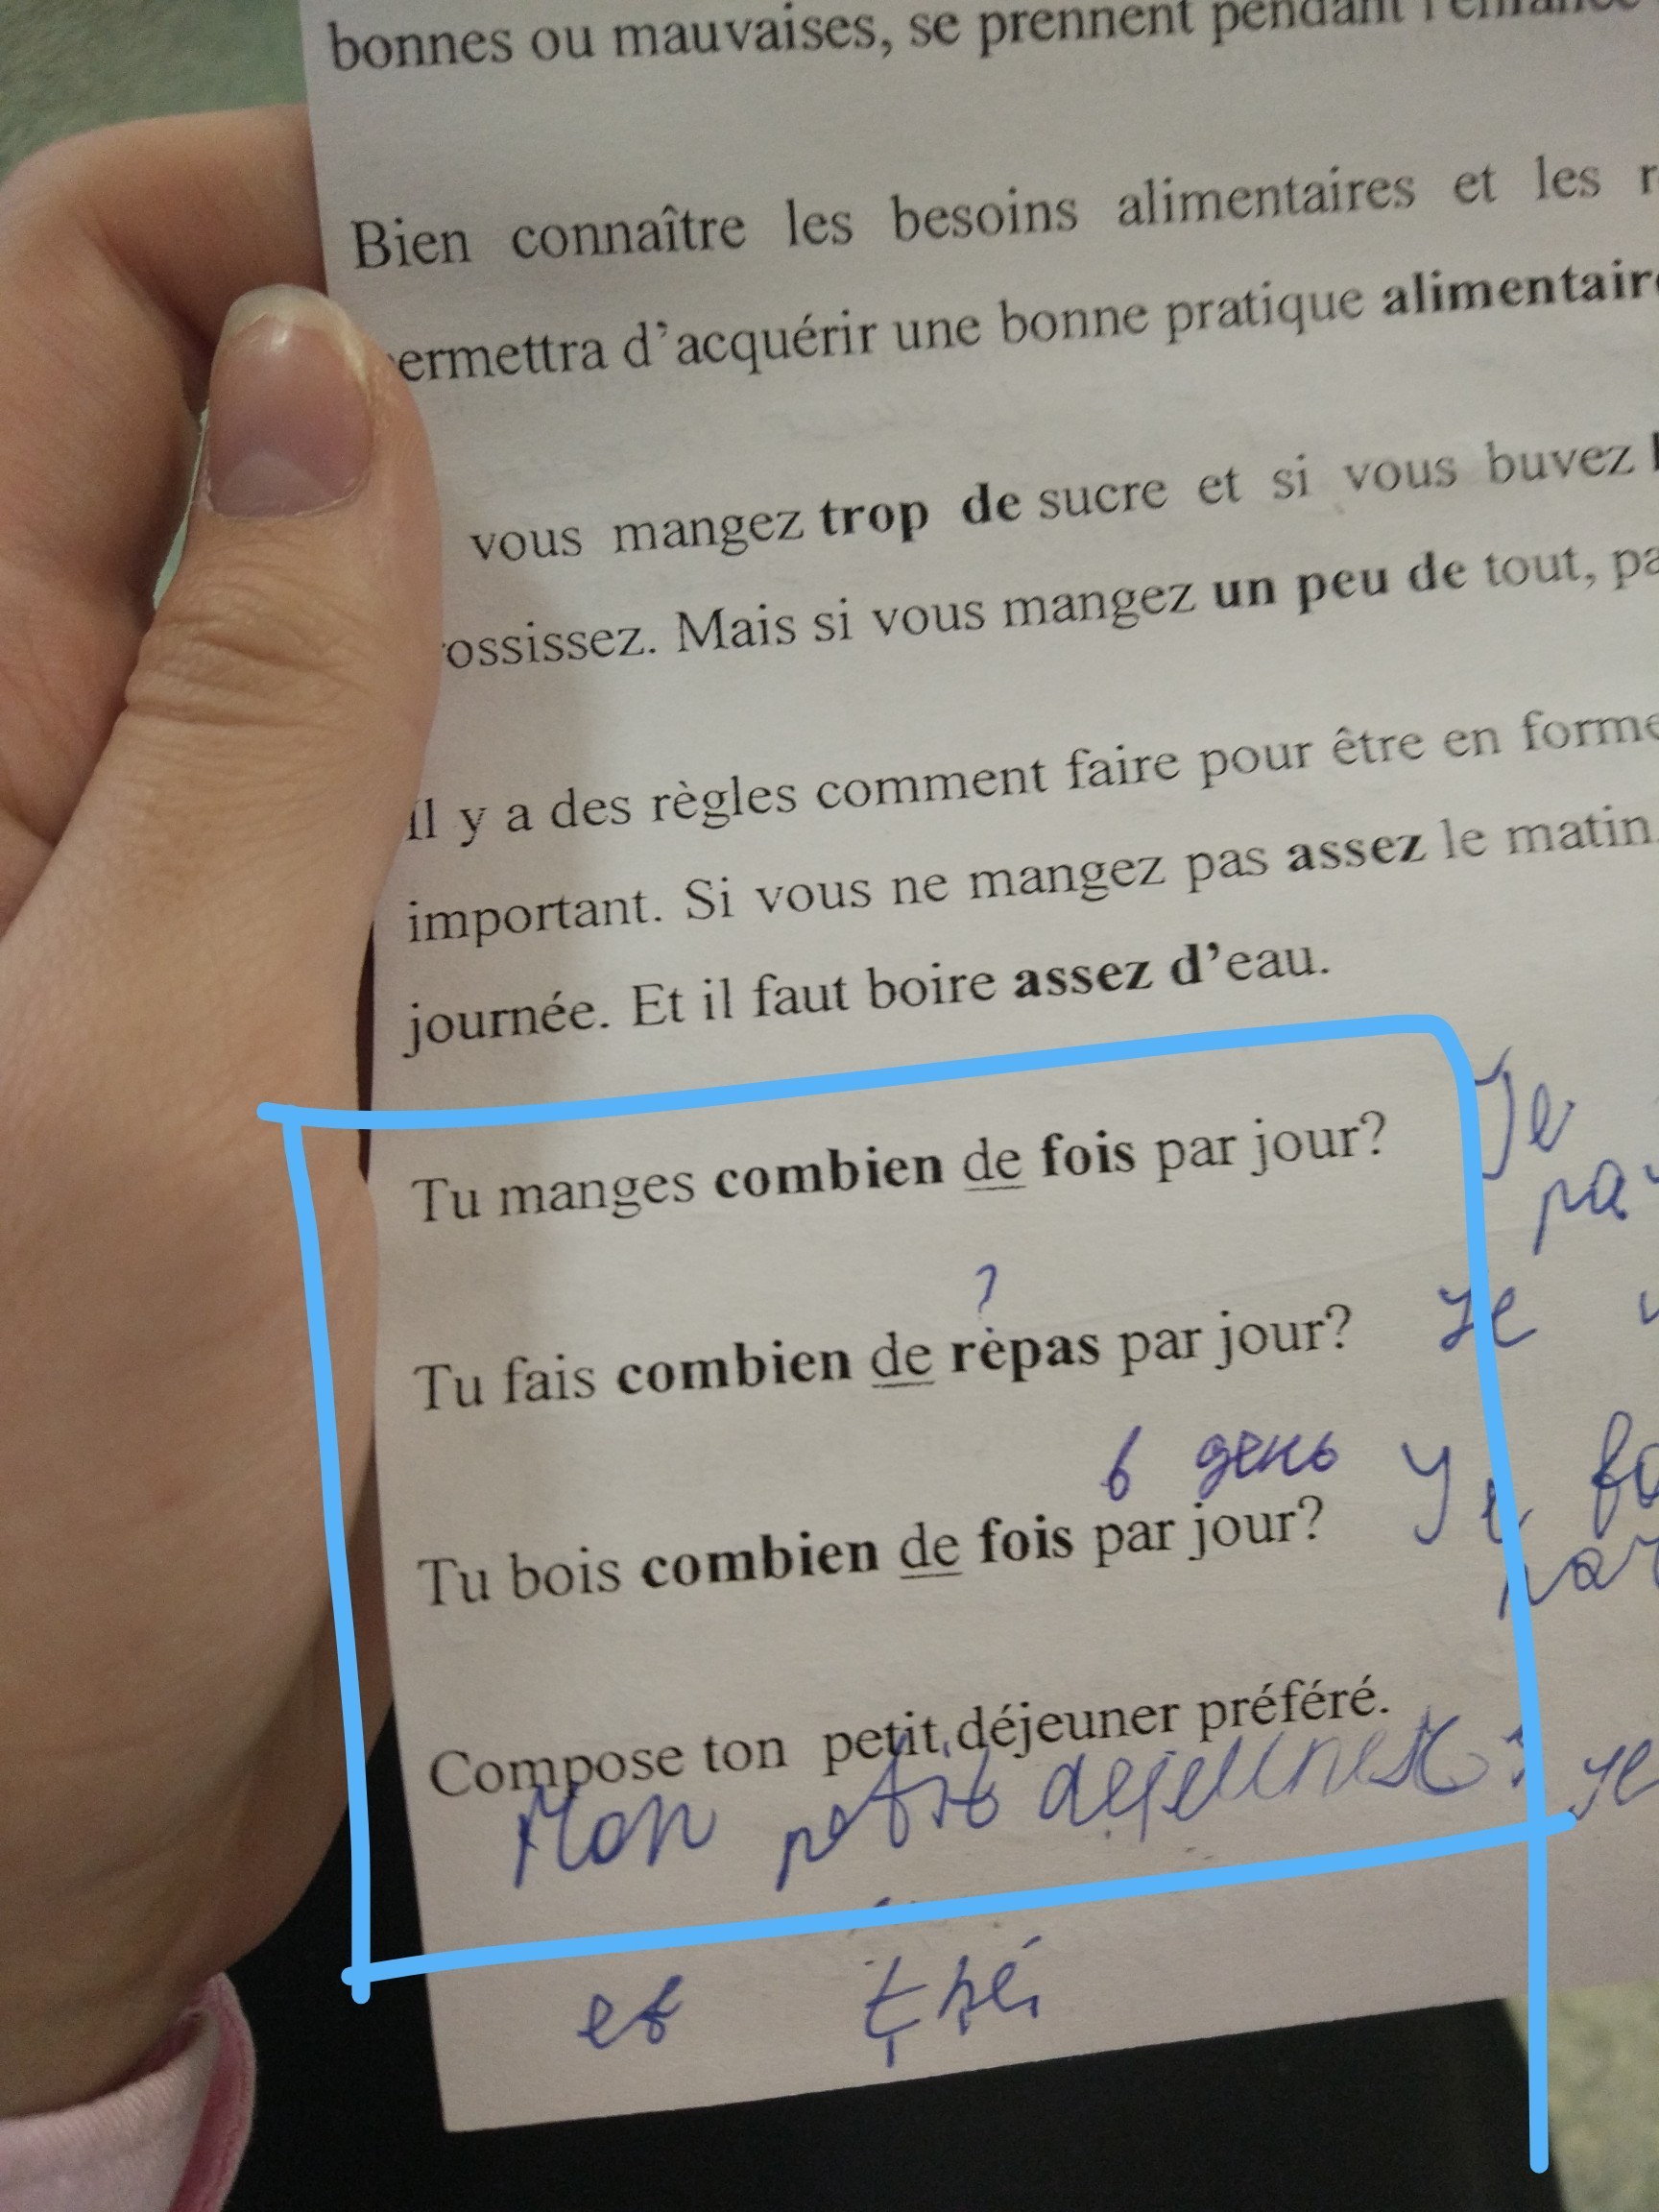 bonnes ou mauvaises, se prennent pendant l'enfance
Bien connaître les besoins alimentaires et les
ermettra d'acquérir une bonne pratique alimentaire
vous mangez trop de sucre et si vous buvez
ossissez. Mais si vous mangez un peu de tout,
Il y a des règles comment faire pour être en forme
important. Si vous ne mangez pas assez le matin.
journée. Et il faut boire assez d'eau.
Tu manges combien de fois par jour? Je
?
Tu fais combien de rèpas par jour? Je
в день Je
Tu bois combien de fois par jour? par
Compose ton petit déjeuner préféré.
Mon petit dejeuner : je
et thé